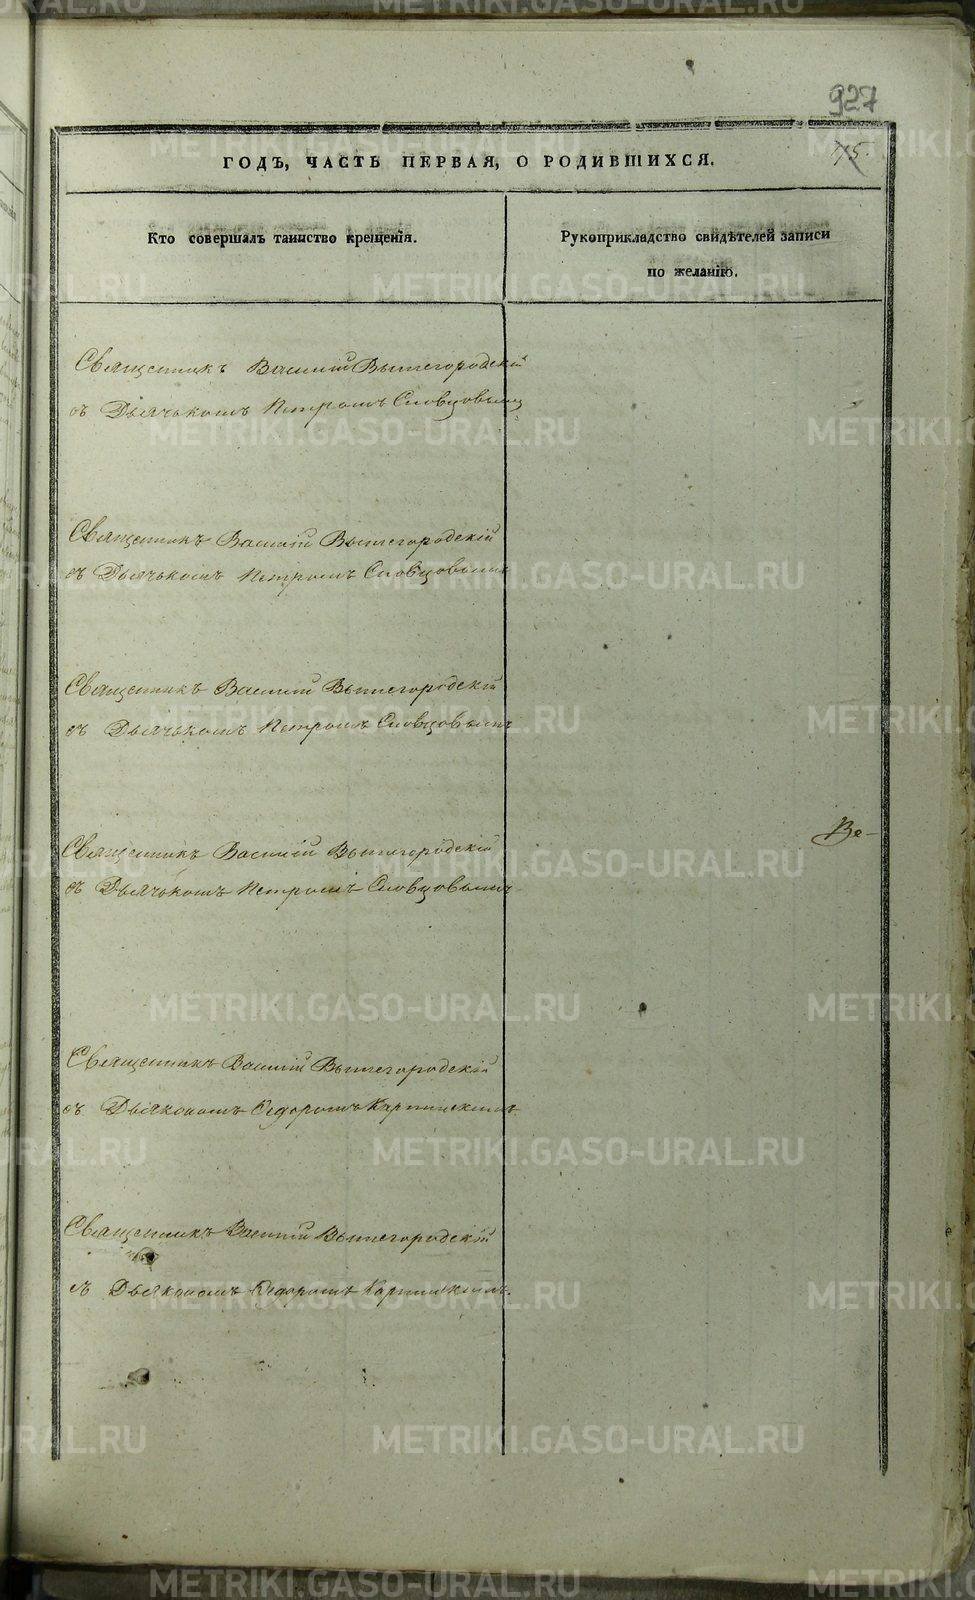 927
75.
ГОДЪ, ЧАСТЬ ПЕРВАЯ, О РОДИВШИХСЯ.
Кто совершалъ таинство крещенія.
Рукоприкладство свидѣтелей записи
по желанію.
Священникъ Василій Вышегородскій
съ Дьячькомъ Петромъ Словцовымъ
Священникъ Василій Вышегородскій
съ Дьячькомъ Петромъ Словцовымъ
Священникъ Василій Вышегородскій
съ Дьячькомъ Петромъ Словцовымъ
Ве-
Священникъ Василій Вышегородскій
съ Дьячькомъ Петромъ Словцовымъ
Священникъ Василій Вышегородскій
съ Дьякономъ Ѳедоромъ Карпинскимъ
Священникъ Василій Вышегородскій
съ Дьякономъ Ѳедоромъ Карпинскимъ.
METRIKI.GASO-URAL.RU